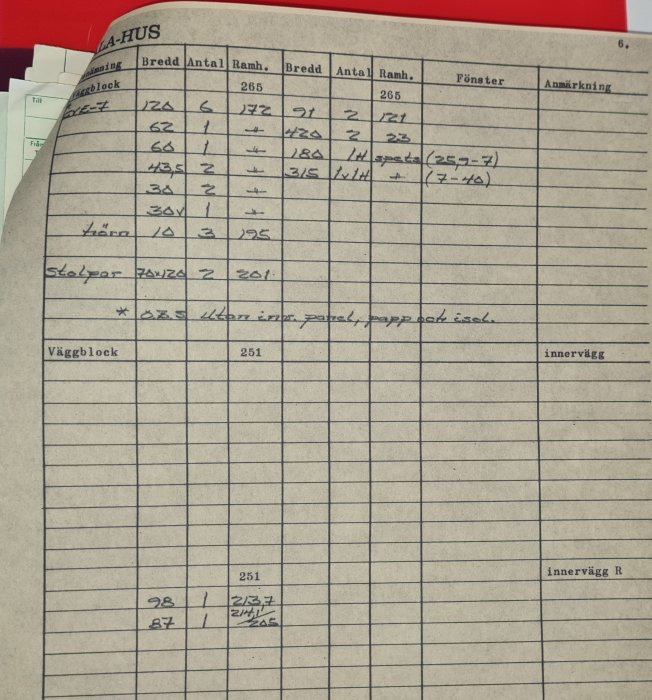 LA-HUS
6.
Bredd Antal Ramh. Bredd Antal Ramh. Fönster Anmärkning
Väggblock 265 265
120 6 172 91 2 121
62 1 -"- 420 2 23
60 1 -"- 180 1H spets (25,7-7)
43,5 2 -"- 315 1v1H -"- (7-40)
30 2 -"-
30v 1 -"-
hörn 10 3 195
Stolpar 70x120 2 201
* O.B.S utan inv. panel, papp och isol.
Väggblock 251 innervägg
251 innervägg R
98 1 213,7
87 1 214,1/205
Till
Från